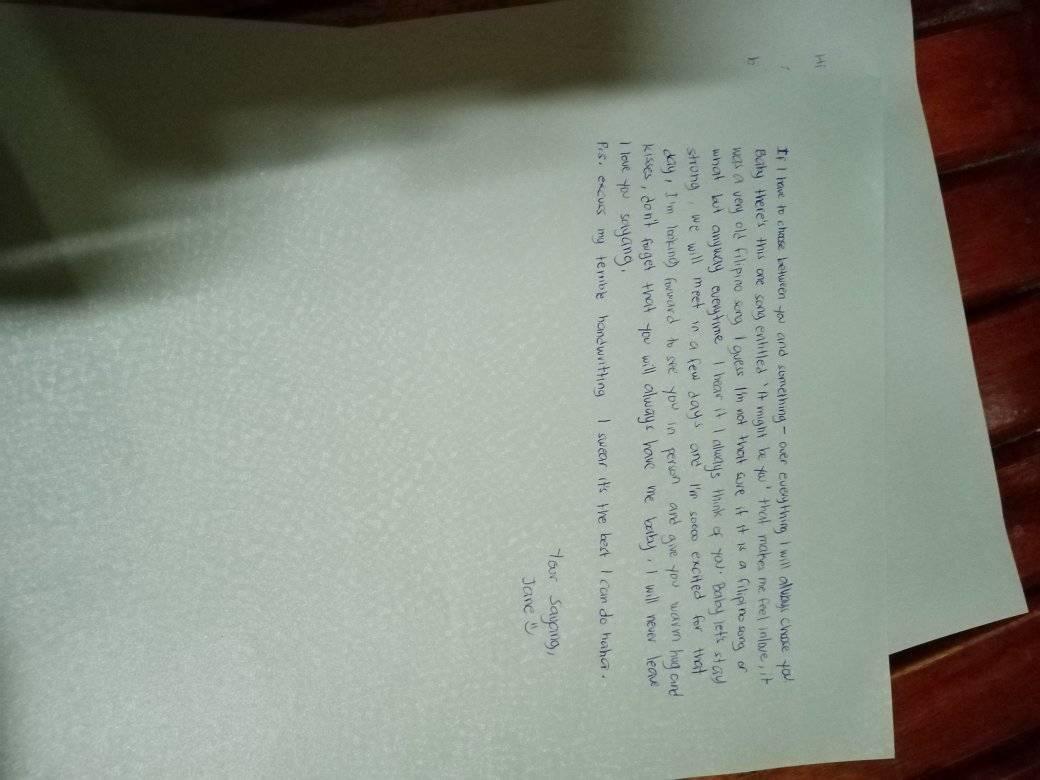 Hi
b
If I have to choose between you and something - over everything I will always choose you
Baby there's this one song entitled 'It might be you' that makes me feel inlove, it
was a very old filipino song I guess I'm not that sure if it is a filipino song or
what but anyway everytime I hear it I always think of you. Baby let's stay
strong, we will meet in a few days and I'm soooo excited for that
day, I'm looking forward to see you in person and give you warm hug and
kisses, don't forget that you will always have me baby, I will never leave
I love you sayang.
P.s. excuss my terrible handwritting I swear it's the best I can do haha.
Your Sayang,
Jane